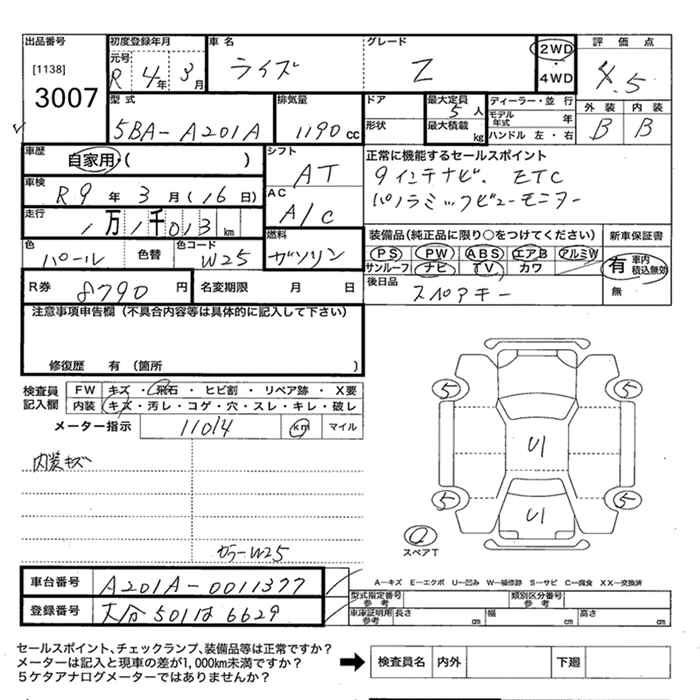 出品番号 初度登録年月 車名 グレード 評価点
[1138] 元号 R 4年 3月 ライズ Z 2WD ・ 4WD 4.5
3007
型式 排気量 ドア 最大定員 5人 ディーラー・並 行 外装 内装
5BA-A201A 1190cc 形状 最大積載 kg モデル年式 年 B B
ハンドル 左・右
車歴 自家用・( ) シフト AT 正常に機能するセールスポイント
車検 R9年 3月 (16日) 9インチナビ. ETC
AC A/C パノラミックビューモニター
走行 1万1千013km
色 パール 色替 色コード W25 燃料 ガソリン 装備品(純正品に限り○をつけてください) 新車保証書
PS PW ABS エアB アルミW
サンルーフ ナビ TV カワ 有 車内積込無効
R券 8790円 名変期限 月 日 後日品 スペアキー 無
注意事項申告欄(不具合内容等は具体的に記入して下さい)
修復歴 有 (箇所 )
検査員記入欄 FW キズ・飛石・ヒビ割・リペア跡・X要
内装 キズ・汚レ・コゲ・穴・スレ・キレ・破レ
メーター指示 11014 km マイル
5 5
内装キズ
U1
5 5
U1
スペアT
カラーW25
車台番号 A201A-0011377
A－キズ E－エクボ U－凹み W－補修跡 S－サビ C－腐食 XX－交換済
登録番号 大分 501は6629
型式指定番号 参考 類別区分番号 参考
車庫証明用 参考 長さ cm 幅 cm 高さ cm
セールスポイント、チェックランプ、装備品等は正常ですか？
メーターは記入と現車の差が1,000km未満ですか？
5ケタアナログメーターではありませんか？
検査員名 内外 下廻